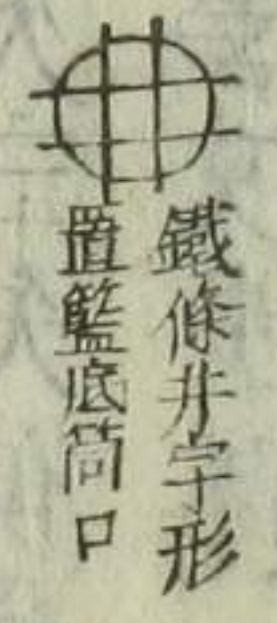 鐵條井字形
置籃底筒口